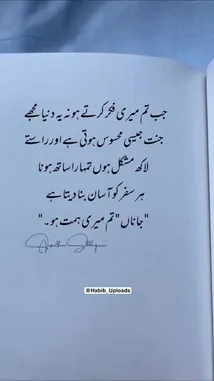 جب تم میری فکر کرتے ہو نہ یہ دنیا مجھے
جنت جیسی محسوس ہوتی ہے اور راستے
لاکھ مشکل ہوں تمہارا ساتھ ہونا
ہر سفر کو آسان بنا دیتا ہے
"جاناں" تم میری ہمت ہو۔"
@Habib_Uploads